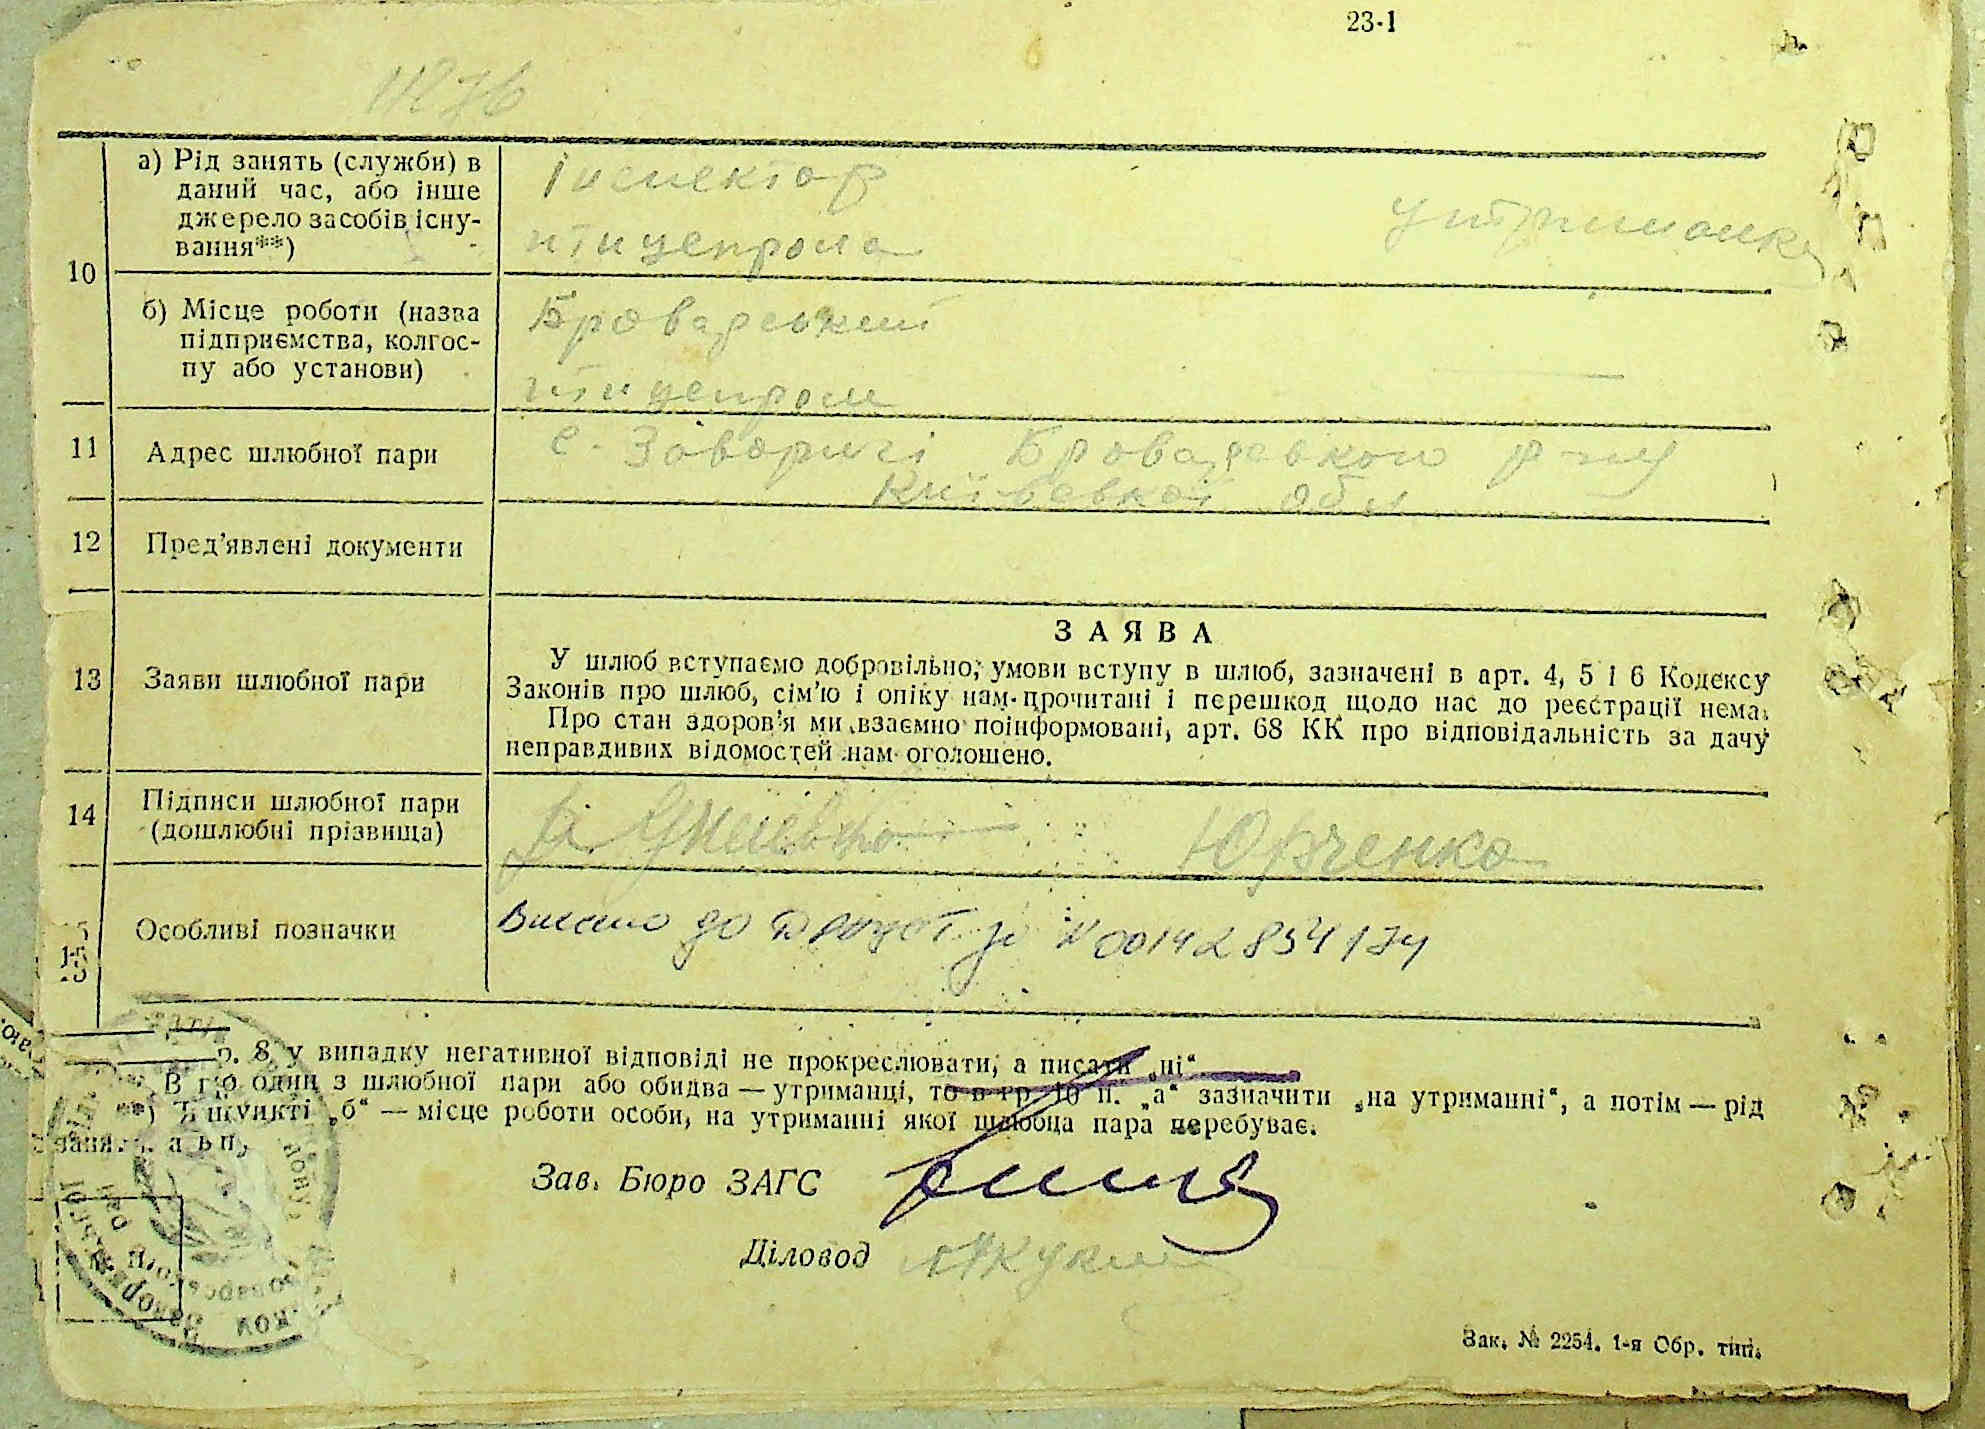 23-1
10
а) Рід занять (служби) в
даний час, або інше
джерело засобів існу-
вання**)
Інспектор
птицепрома
утриманка
б) Місце роботи (назва
підприємства, колгос-
пу або установи)
Броварський
птицепром
11
Адрес шлюбної пари
с. Заворичі Броварського р-ну
Київської обл
12
Пред'явлені документи
13
Заяви шлюбної пари
ЗАЯВА
У шлюб вступаємо добровільно; умови вступу в шлюб, зазначені в арт. 4, 5 і 6 Кодексу
Законів про шлюб, сім'ю і опіку нам прочитані і перешкод щодо нас до реєстрації нема.
Про стан здоров'я ми взаємно поінформовані, арт. 68 КК про відповідальність за дачу
неправдивих відомостей нам оголошено.
14
Підписи шлюбної пари
(дошлюбні прізвища)
Юрченко
15
Особливі позначки
до № 00142854134
р. 8 у випадку негативної відповіді не прокреслювати, а писати „ні“
один з шлюбної пари або обидва — утриманці, то в гр. 10 п. „а“ зазначити „на утриманні“, а потім — рід
пункті „б“ — місце роботи особи, на утриманні якої шлюбна пара перебуває.
Зав. Бюро ЗАГС
Діловод
Зак. № 2254. 1-я Обр. тип.